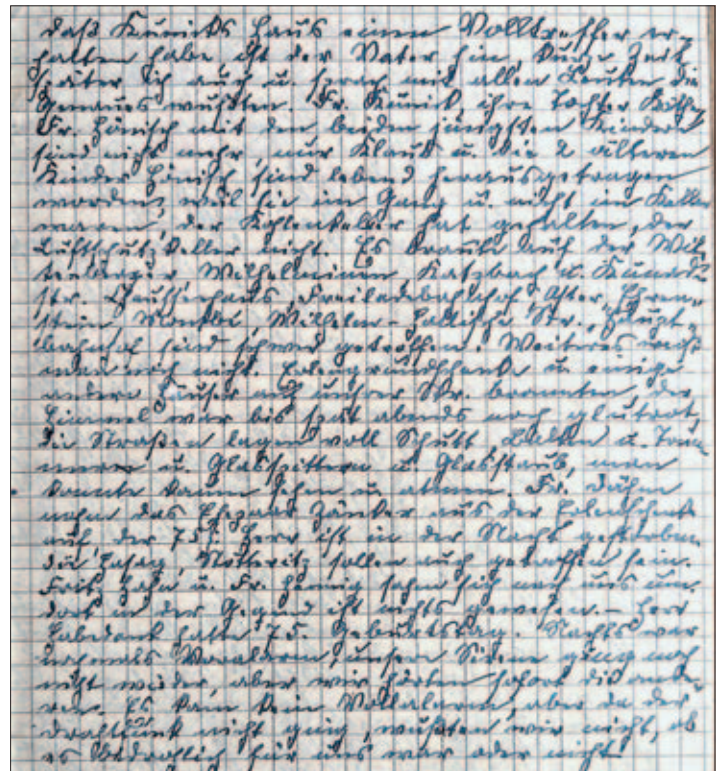 daß Kunicks Haus einen Volltreffer er-
halten habe ist der Vater hin, kurze Zeit
später ich auch u. sprach mit allen Leuten die
genaues wußten. Fr. Kunick, ihre Tochter Käthe,
Fr. Hönisch mit den beiden jüngsten Kindern
sind nicht mehr, nur Klaus u. die 2 älteren
Kinder Hönisch sind lebend herausgetragen
worden, weil sie im Gang u. nicht im Keller
waren, der Kohlenkeller hat gehalten, der
Luftschutzkeller nicht. Es brannte auf der Wit-
tenberger, Wilhelminen, Katzbach u.
str. Freiladebahnhof,
Wilhelm- Hallische Str., Haupt-
bahnhof sind schwer getroffen. Weiteres weiß
man noch nicht. u. einige
andere Häuser auf unsrer Str. brannten, der
Himmel war bis spät abends noch glutrot,
die Straßen lagen voll Schutt, Balken u. Trüm-
mern u. Glassplittern u. Glasstaub, man
konnte kaum sehen u. atmen. Fr. Dähne
nahm das Ehepaar Zänker aus der
auf, der 75j. Herr ist in der Nacht gestorben.
Die Hasag, Nötteritz sollen auch getroffen sein.
Fritz Hahn u. Fr. Hennig sahen sich nach uns um.
dort in der Gegend ist nichts gewesen. – Herr
Habedank hatte 75. Geburtstag. Nachts war
nochmals Voralarm, unsere Sirene ging noch
nicht wieder, aber wir hörten sofort die ande-
ren. Es kam kein Vollalarm, aber da der
Drahtfunk nicht ging, wußten wir nicht, ob
es bedrohlich für uns war oder nicht